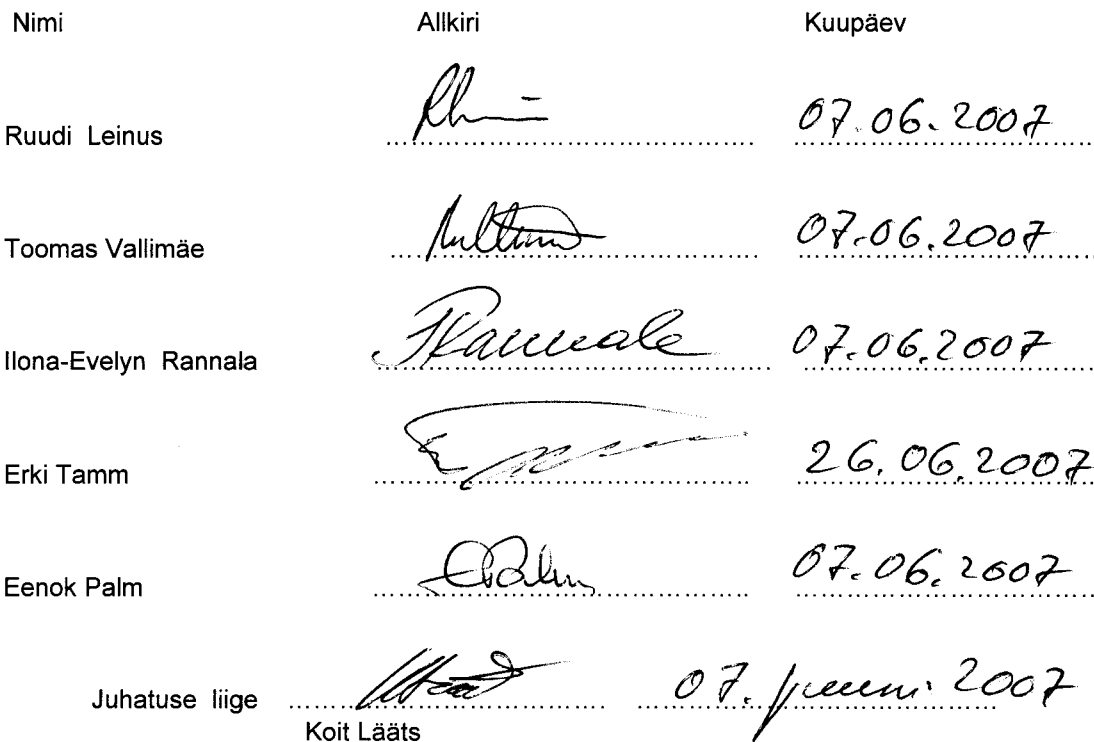 Nimi Allkiri Kuupäev
Ruudi Leinus 07.06.2007
Toomas Vallimäe 07.06.2007
Ilona-Evelyn Rannala IRannala 07.06.2007
Erki Tamm 26.06.2007
Eenok Palm EPalm 07.06.2007
Juhatuse liige 07. juuni 2007
Koit Lääts